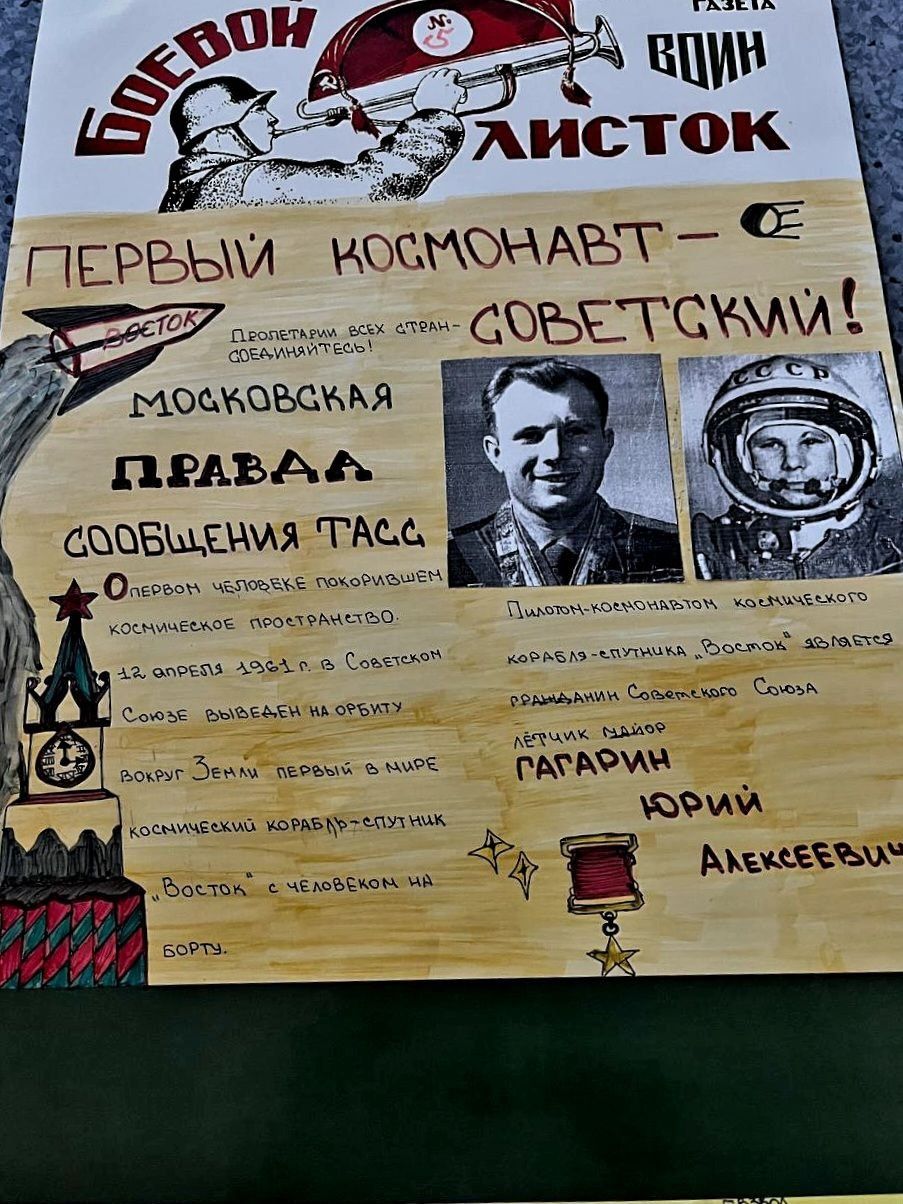 ГАЗЕТА
БОЕВОЙ
№
5
ВОИН
ЛИСТОК
ПЕРВЫЙ КОСМОНАВТ –
СОВЕТСКИЙ!
ВОСТОК
ПРОЛЕТАРИИ ВСЕХ СТРАН-
СОЕДИНЯЙТЕСЬ!
МОСКОВСКАЯ
ПРАВДА
СООБЩЕНИЯ ТАСС
О ПЕРВОМ ЧЕЛОВЕКЕ ПОКОРИВШЕМ
КОСМИЧЕСКОЕ ПРОСТРАНСТВО.
12 АПРЕЛЯ 1961 Г. В СОВЕТСКОМ
СОЮЗЕ ВЫВЕДЕН НА ОРБИТУ
ВОКРУГ ЗЕМЛИ ПЕРВЫЙ В МИРЕ
КОСМИЧЕСКИЙ КОРАБЛЬ-СПУТНИК
„ВОСТОК" С ЧЕЛОВЕКОМ НА
БОРТУ.
СССР
ПИЛОТОМ-КОСМОНАВТОМ КОСМИЧЕСКОГО
КОРАБЛЯ-СПУТНИКА „ВОСТОК" ЯВЛЯЕТСЯ
ГРАЖДАНИН СОВЕТСКОГО СОЮЗА
ЛЁТЧИК МАЙОР
ГАГАРИН
ЮРИЙ
АЛЕКСЕЕВИЧ